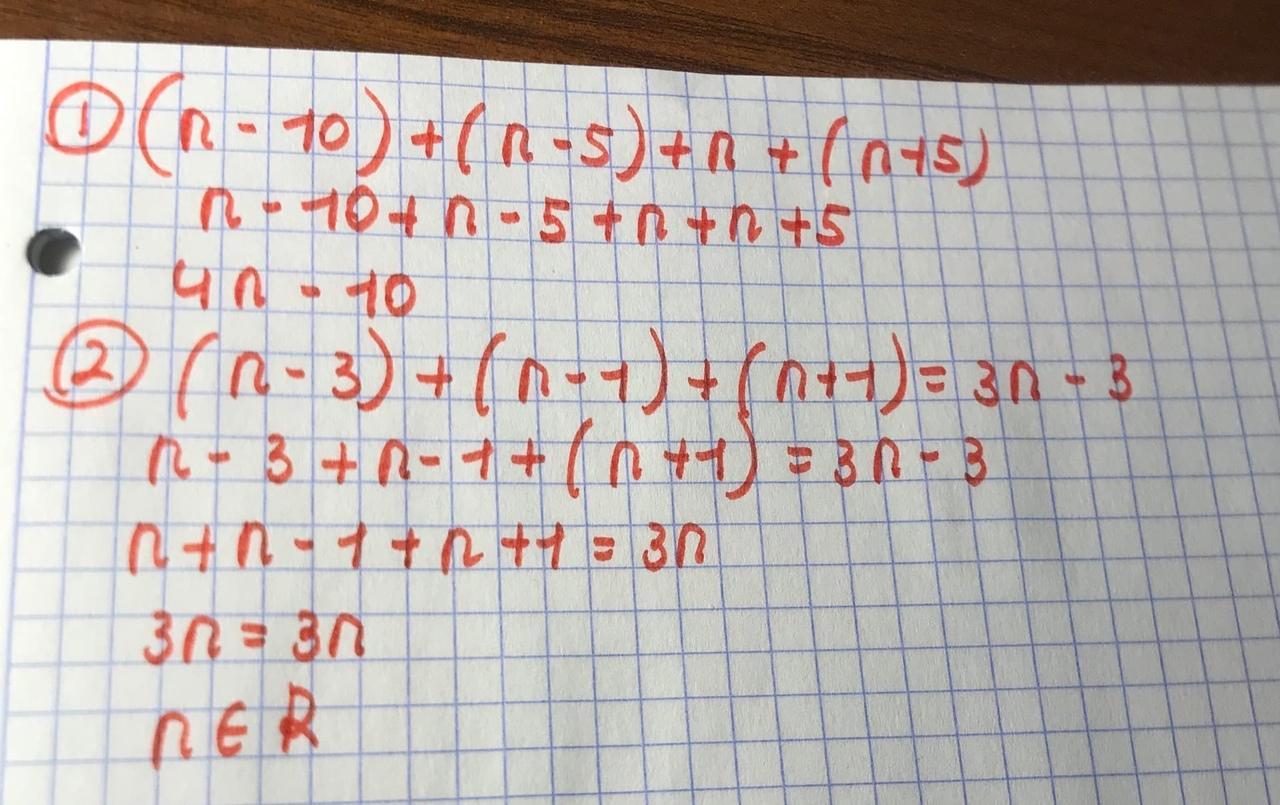 ① (n - 10) + (n - 5) + n + (n + 5)
n - 10 + n - 5 + n + n + 5
4n - 10
② (n - 3) + (n - 1) + (n + 1) = 3n - 3
n - 3 + n - 1 + (n + 1) = 3n - 3
n + n - 1 + n + 1 = 3n
3n = 3n
n ∈ R